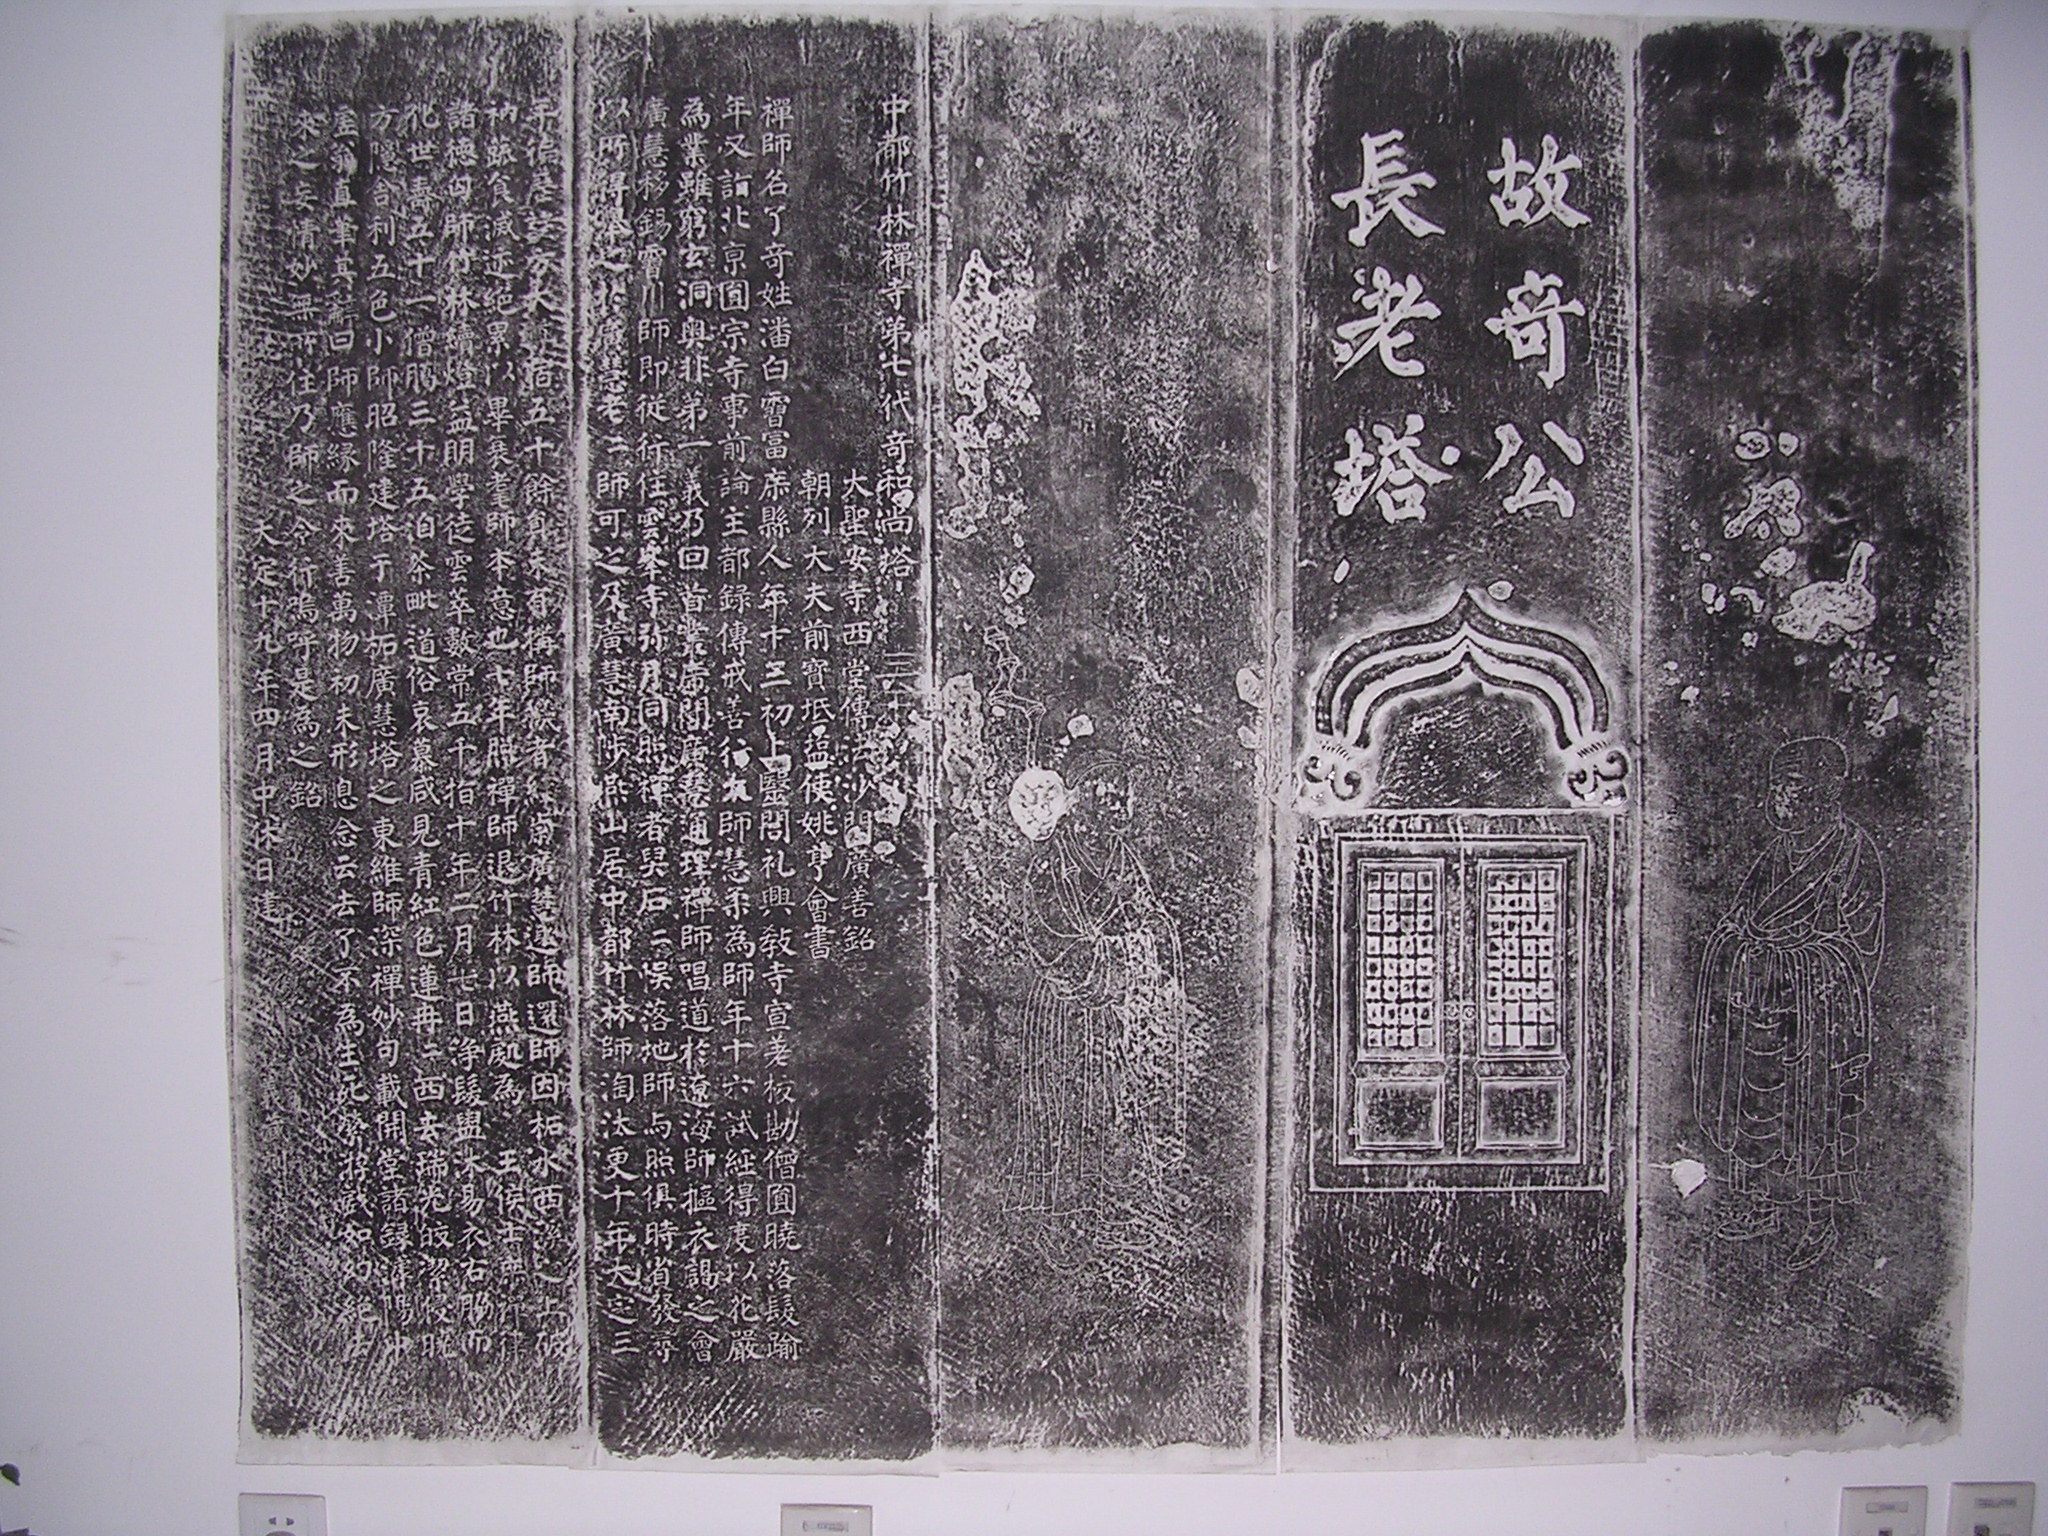 故奇公
長老塔
中都竹林禪寺第七代奇和尚塔
大聖安寺西堂傳法沙門廣善銘
朝列大夫前寶坻鹽使姚亨會書
禪師名了奇姓潘白霫富庶縣人年十三初上醫閭礼興教寺宣差板勘僧圓曉落髮踰
年又詣北京圓宗寺事前論主都錄傳戒善行大師慧柔為師年十六試經得度以花嚴
為業雖窮玄洞奧非第一義乃回首業席聞廣慧通理禪師唱道於遼海師摳衣謁之會
廣慧移錫霫川師即從行住雲峯寺弥月同照禪者舁石二誤落地師与照俱時省發尋
以所得舉之於廣慧老二師可之及廣慧南陟燕山居中都竹林師淘汰更十年大定三
年 五十餘 未 稱師 者 廣慧 師選師因柘水西 之上破
衲蔬食滅迹絕累以畢衰耄師本意也七年照禪師退竹林以燕 為 王侯士庶 律
諸德四師竹林續燈益明學徒雲萃數常五千指十年二月七日淨髮盥沐易衣右脇而
化世壽五十一僧臘三十五洎茶毗道俗哀慕咸見青紅色蓮冉二西去瑞光皎潔
方隱舍利五色小師昭隆建塔于潭柘廣慧塔之東維師深禪妙句載開堂諸錄
直筆其辭曰師應緣而來善萬物初未形息念云去了不為生死 游戲如幻
來之妄情妙無所住乃師之令行嗚呼是為之銘
大定十九年四月中休日建